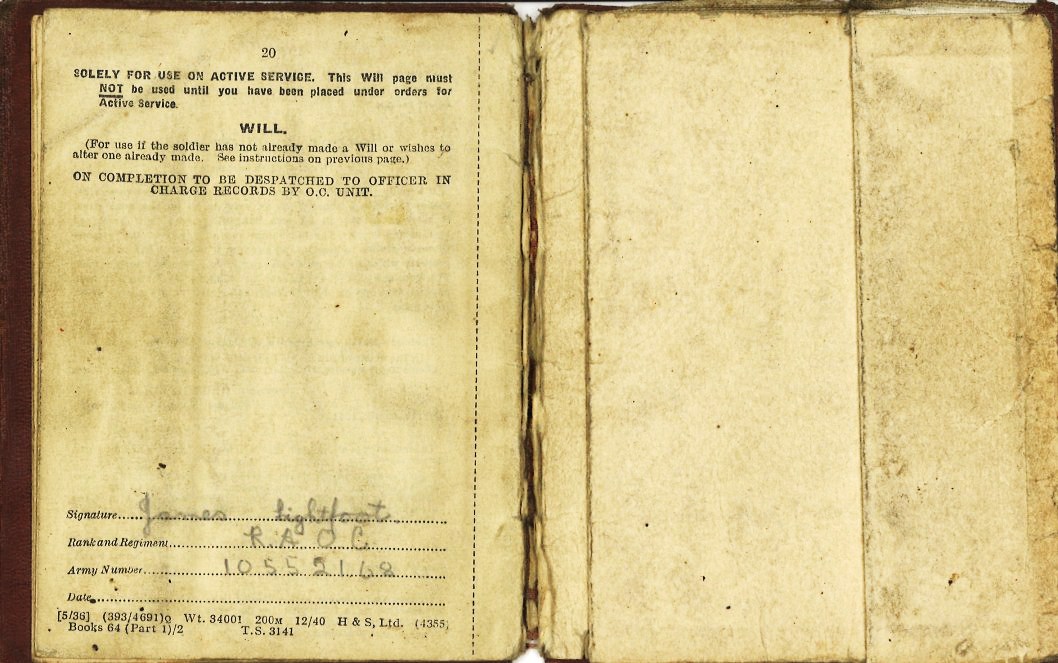 20
SOLELY FOR USE ON ACTIVE SERVICE. This Will page must
NOT be used until you have been placed under orders for
Active Service.
WILL.
(For use if the soldier has not already made a Will or wishes to
alter one already made. See instructions on previous page.)
ON COMPLETION TO BE DESPATCHED TO OFFICER IN
CHARGE RECORDS BY O.C. UNIT.
Signature James Lightfoot
Rank and Regiment R.A.O.C.
Army Number 10552168
Date
[5/36] (393/4691)Q Wt. 34001 200M 12/40 H & S, Ltd. (4355)
Books 64 (Part 1)/2 T.S. 3141